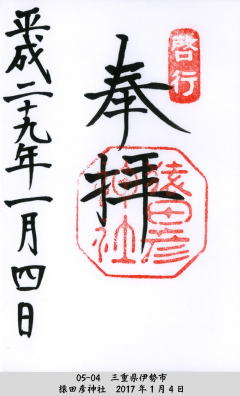 啓行
奉拝
猿田彦神社
平成二十九年一月四日
05-04 三重県伊勢市
猿田彦神社 2017年1月4日